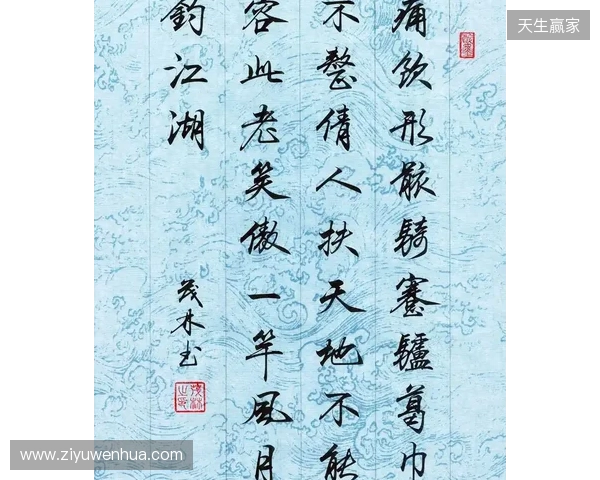 天生赢家
痛饮形骸騎蹇驢葛巾
不整倩人扶天地不能
容此老笑傲一竿風月
釣江湖
茂林书
www.ziyuwenhua.com